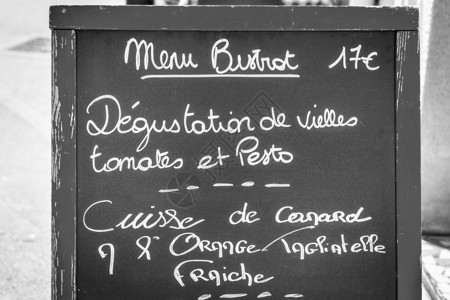 Menu Bistrot 17€
Dégustation de vielles
tomates et Pesto
Cuisse de Canard
à l'Orange Tagliatelle
Fraiche